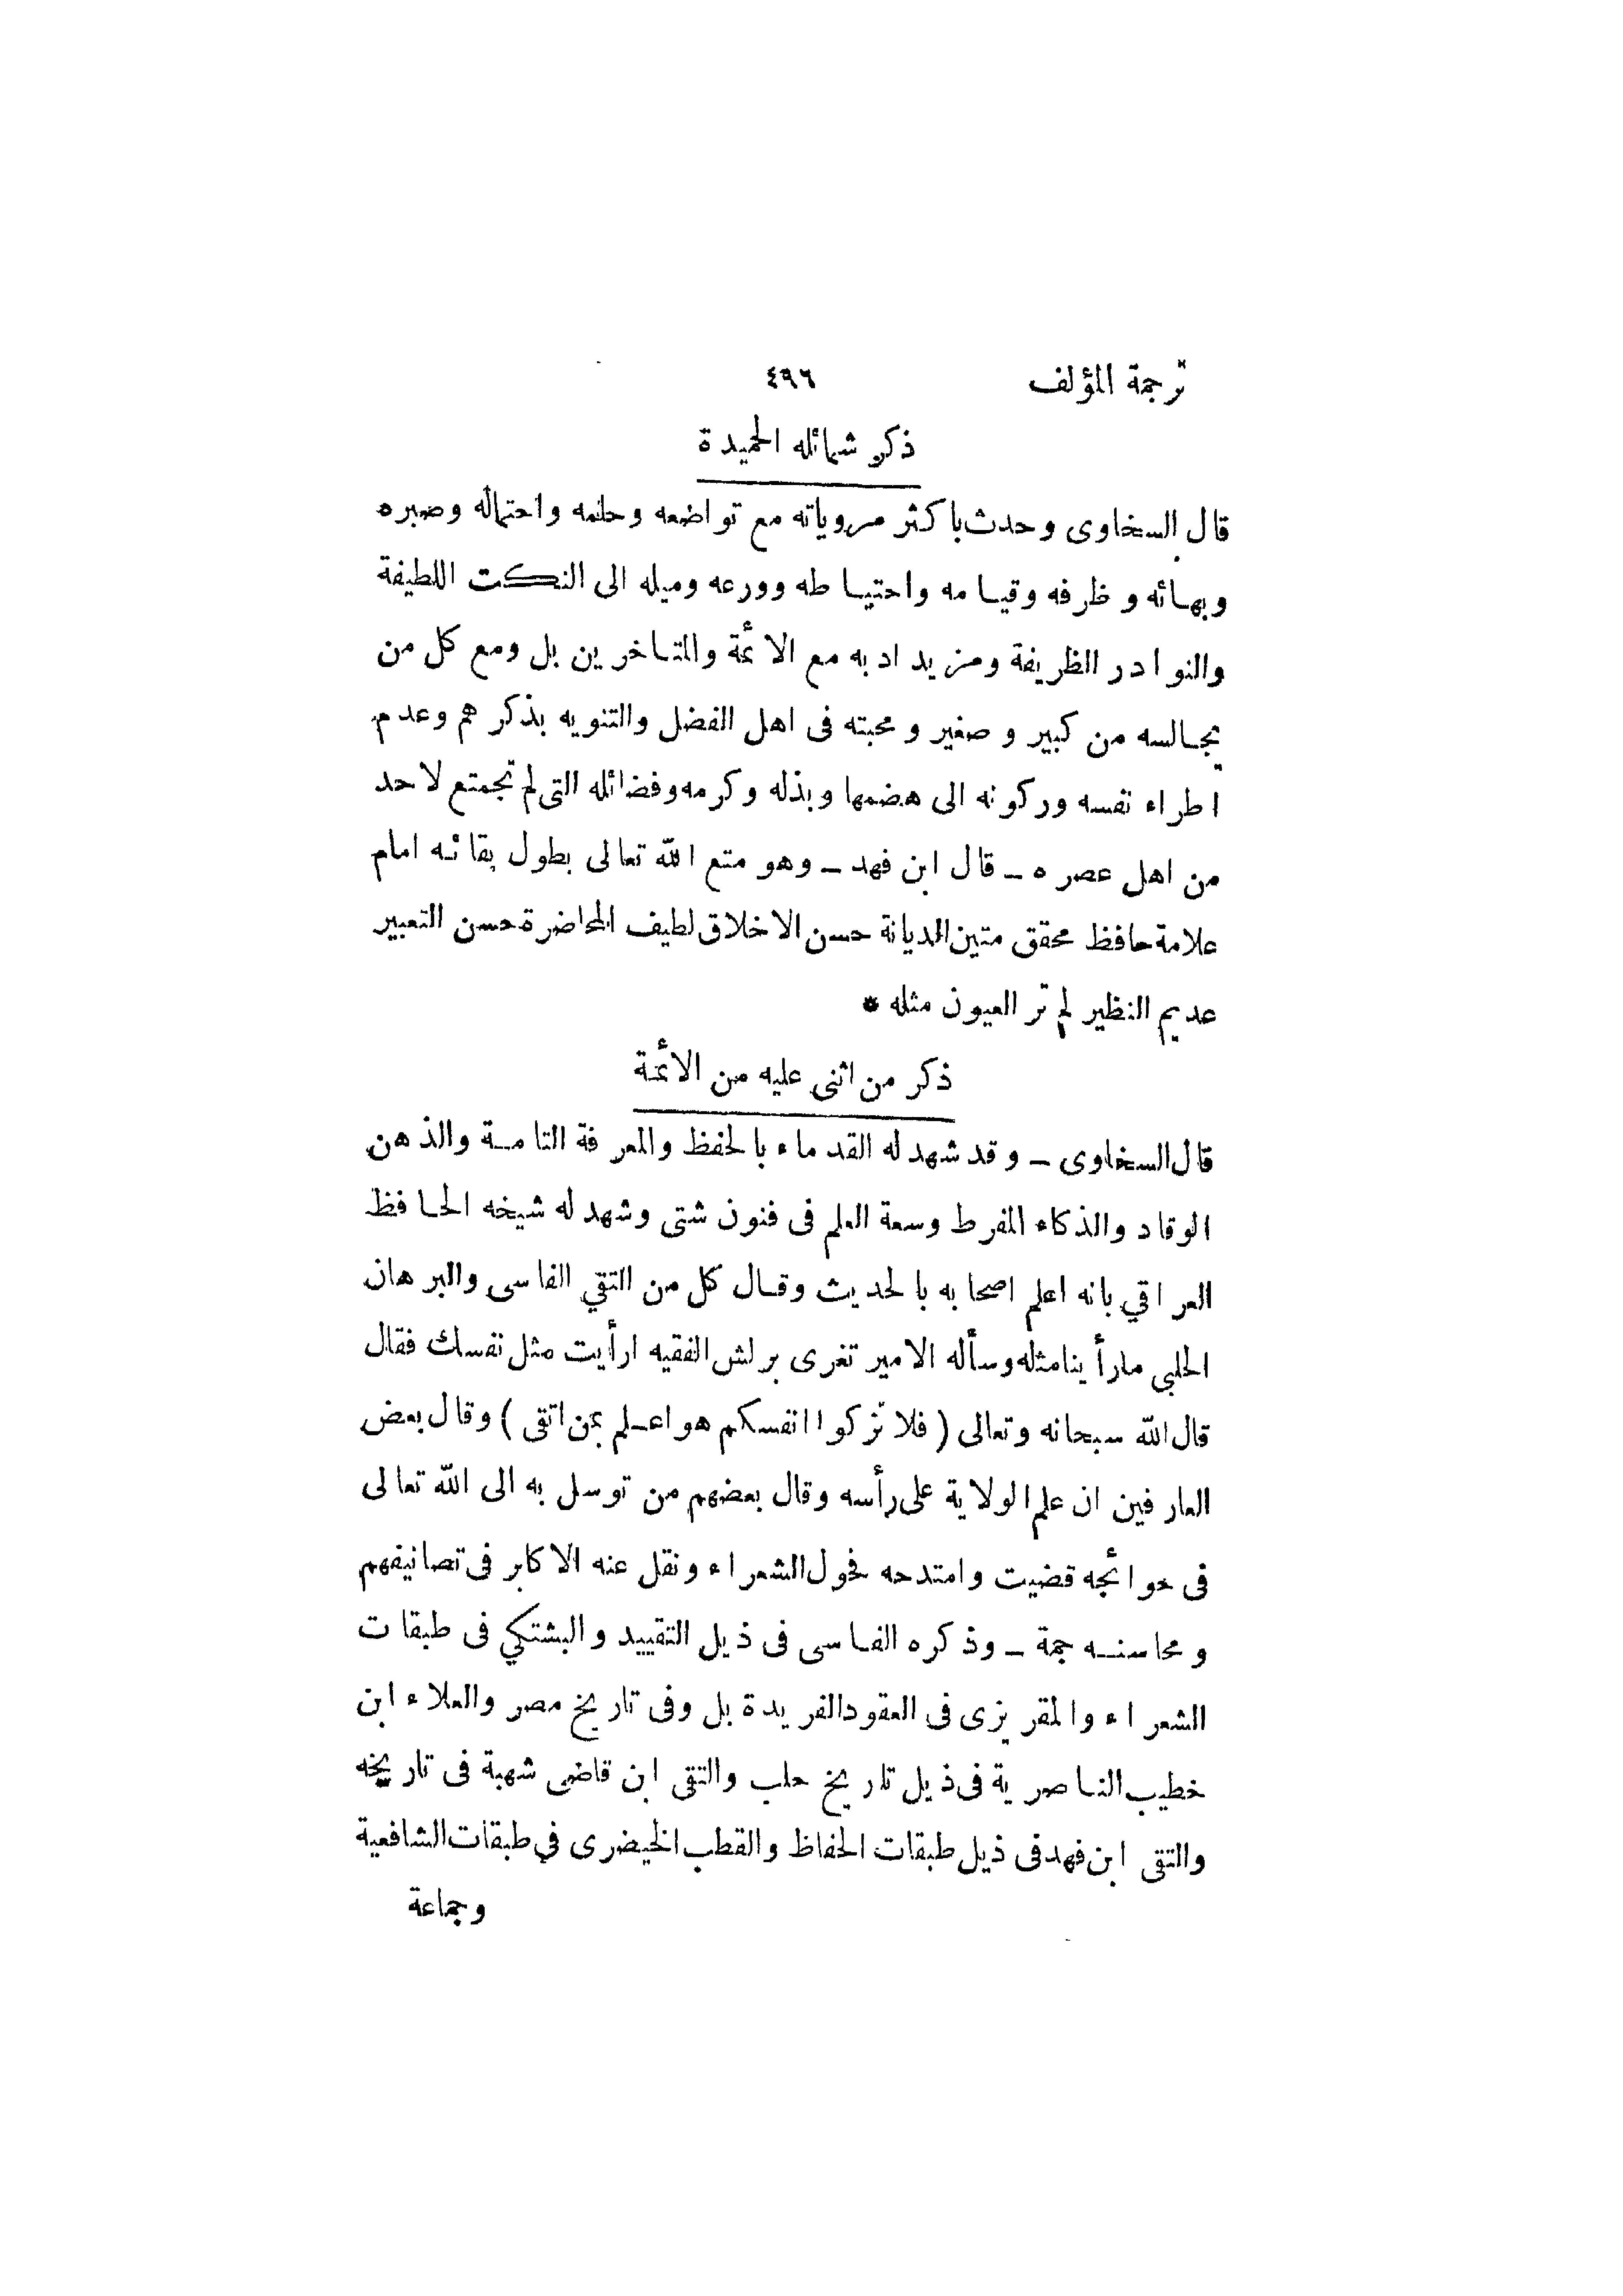 ترجمة المؤلف ٤٩٦
ذكر شمائله الحميدة
قال السخاوى وحدث باكثر مروياته مع تواضعه وحلمه واحتماله وصبره
وبهائه وظرفه وقيامه واحتياطه وورعه وميله الى النكت اللطيفة
والنوادر الظريفة ومزيد ادبه مع الائمة والمتاخرين بل ومع كل من
يجالسه من كبير وصغير ومحبته فى اهل الفضل والتنويه بذكرهم وعدم
اطراء نفسه وركونه الى هضمها وبذله وكرمه وفضائله التى لم تجمتع لاحد
من اهل عصره ـ قال ابن فهد ـ وهو متع الله تعالى بطول بقائه امام
علامة حافظ محقق متين الديانة حسن الاخلاق لطيف المحاضرة حسن التعبير
عديم النظير لم تر العيون مثله *
ذكر من اثنى عليه من الائمة
قال السخاوى ـ وقد شهد له القدماء بالحفظ والمعرفة التامة والذهن
الوقاد والذكاء المفرط وسعة العلم فى فنون شتى وشهد له شيخه الحافظ
العراقي بانه اعلم اصحابه بالحديث وقال كل من التقي الفاسى والبرهان
الحلبي مارأينامثله وسأله الامير تغرى برلش الفقيه ارأيت مثل نفسك فقال
قال الله سبحانه وتعالى ( فلا تزكوا انفسكم هو اعلم بمن اتقى ) وقال بعض
العارفين ان علم الولاية على رأسه وقال بعضهم من توسل به الى الله تعالى
فى حوائجه قضيت وامتدحه فحول الشعراء ونقل عنه الاكابر فى تصانيفهم
ومحاسنه جمة ـ وذكره الفاسى فى ذيل التقييد والبشتكي فى طبقات
الشعراء والمقريزى فى العقود الفريدة بل وفى تاريخ مصر والعلاء ابن
خطيب الناصرية فى ذيل تاريخ حلب والتقى ابن قاضى شهبة فى تاريخه
والتقى ابن فهد فى ذيل طبقات الحفاظ والقطب الخيضرى في طبقات الشافعية
وجماعة